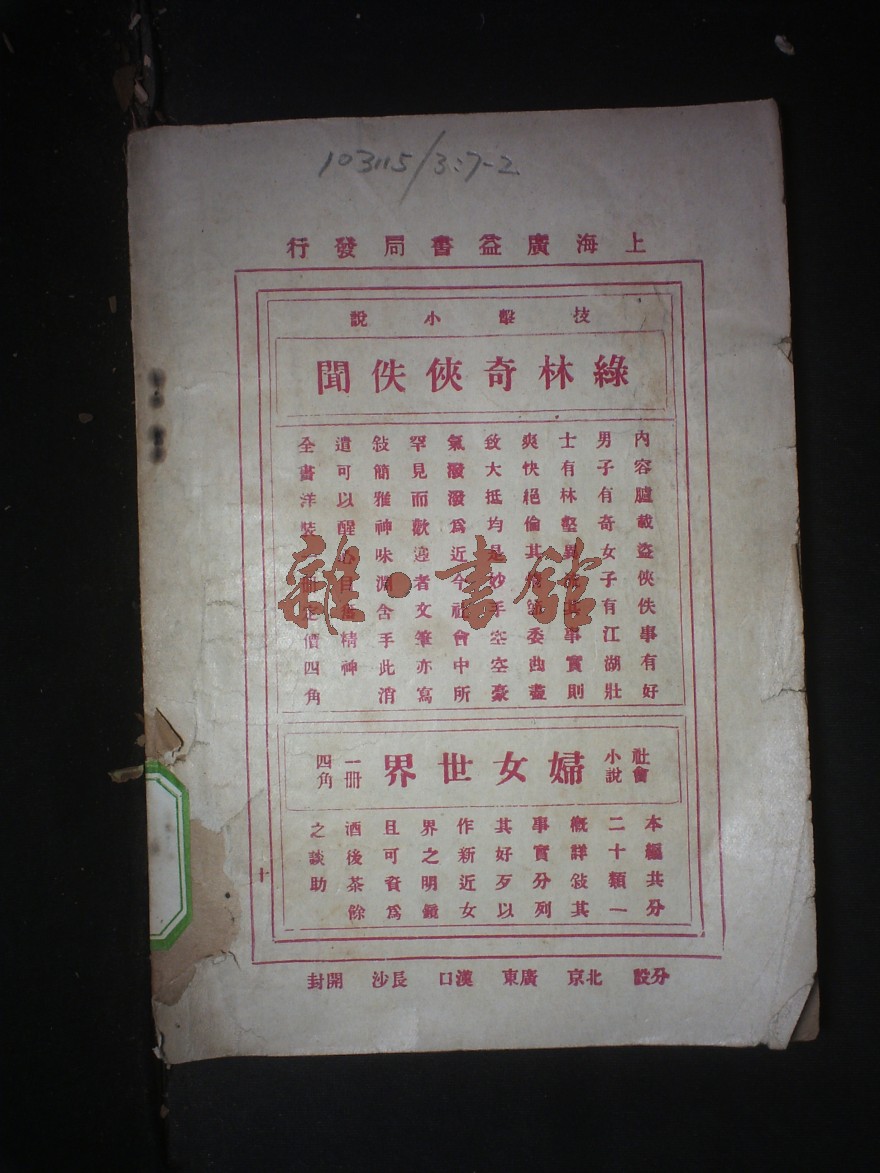 103115/3:7-2
上海廣益書局發行
技擊小說
綠林奇俠佚聞
內容臚載盜俠佚事有好
男子有奇女子有江湖壯
士有林壑異
事實則
爽快絕倫其
委曲盡
致大抵均是妙手空空豪
氣潑潑為近今社會中所
罕見而歡迎者文筆亦寫
敍簡雅神味淵含手此消
遣可以醒心目
精神
全書洋裝一冊定價四角
社會小說
婦女世界
一冊四角
本編共分
二十類一
概詳敍其
事實分列
其好歹以
作新近女
界之明鏡
且可資為
酒後茶餘
之談助
十
分設 北京 廣東 漢口 長沙 開封
雜·書館